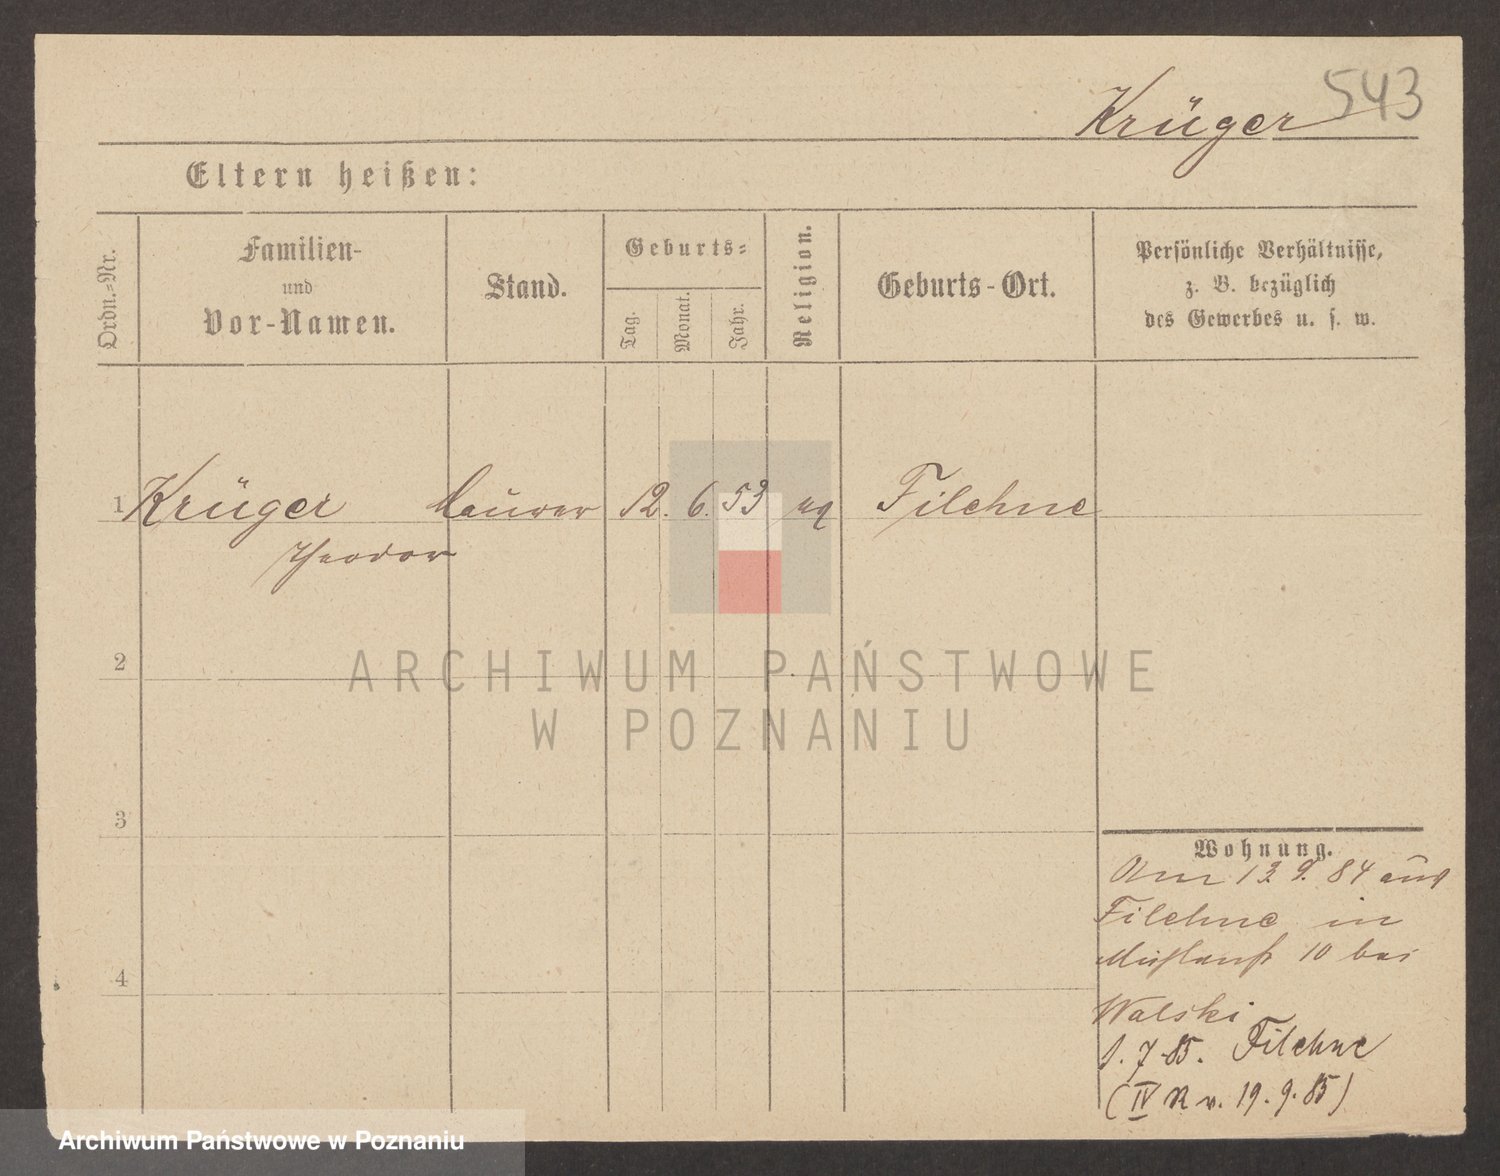 Krüger 543
Eltern heißen:
Ordn.-Nr.
Familien-
und
Vor-Namen.
Stand.
Geburts-
Tag.
Monat.
Jahr.
Religion.
Geburts-Ort.
Persönliche Verhältnisse,
z. B. bezüglich
des Gewerbes u. s. w.
1 Krüger Maurer 12. 6. 53 Filehne
Theodor
2
ARCHIWUM PAŃSTWOWE
W POZNANIU
3
Wohnung.
13. 9. 84 aus
Filehne in
10 bei
4
Walski
1. 7. 85. Filehne
(IV R v. 19. 9. 85)
Archiwum Państwowe w Poznaniu